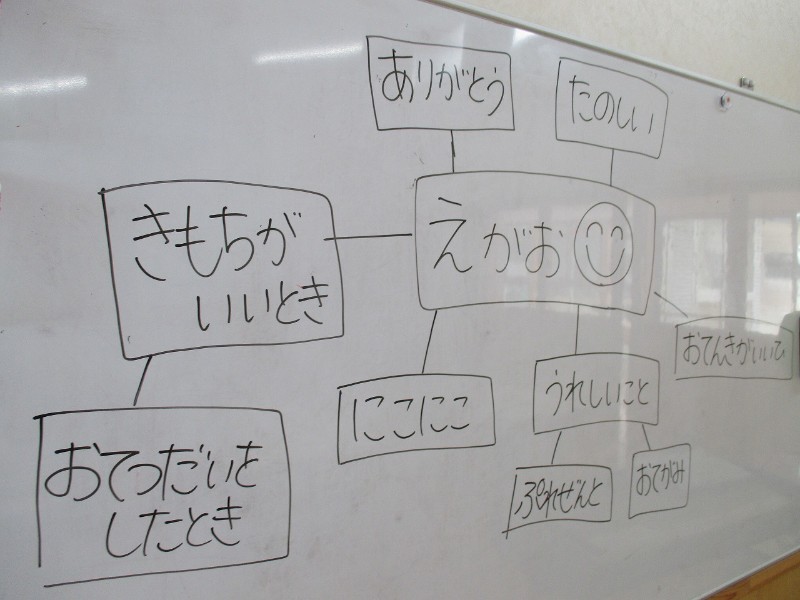 ありがとう
たのしい
きもちが
いいとき
えがお
おてんきがいいひ
にこにこ
うれしいこと
おてつだいを
したとき
ぷれぜんと
おてがみ